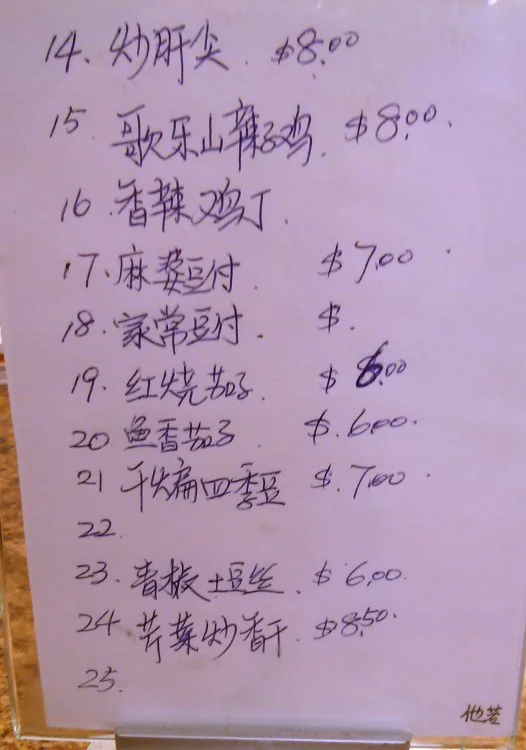 14. 炒肝尖. $8.00
15. 歌乐山辣子鸡. $8.00.
16. 香辣鸡丁.
17. 麻婆豆付. $7.00
18. 家常豆付. $.
19. 红烧茄子. $6.00
20. 鱼香茄子. $.6.00.
21 干煸四季豆 $.7.00
22.
23. 青椒土豆丝. $6.00.
24. 芹菜炒香干. $8.50.
25.